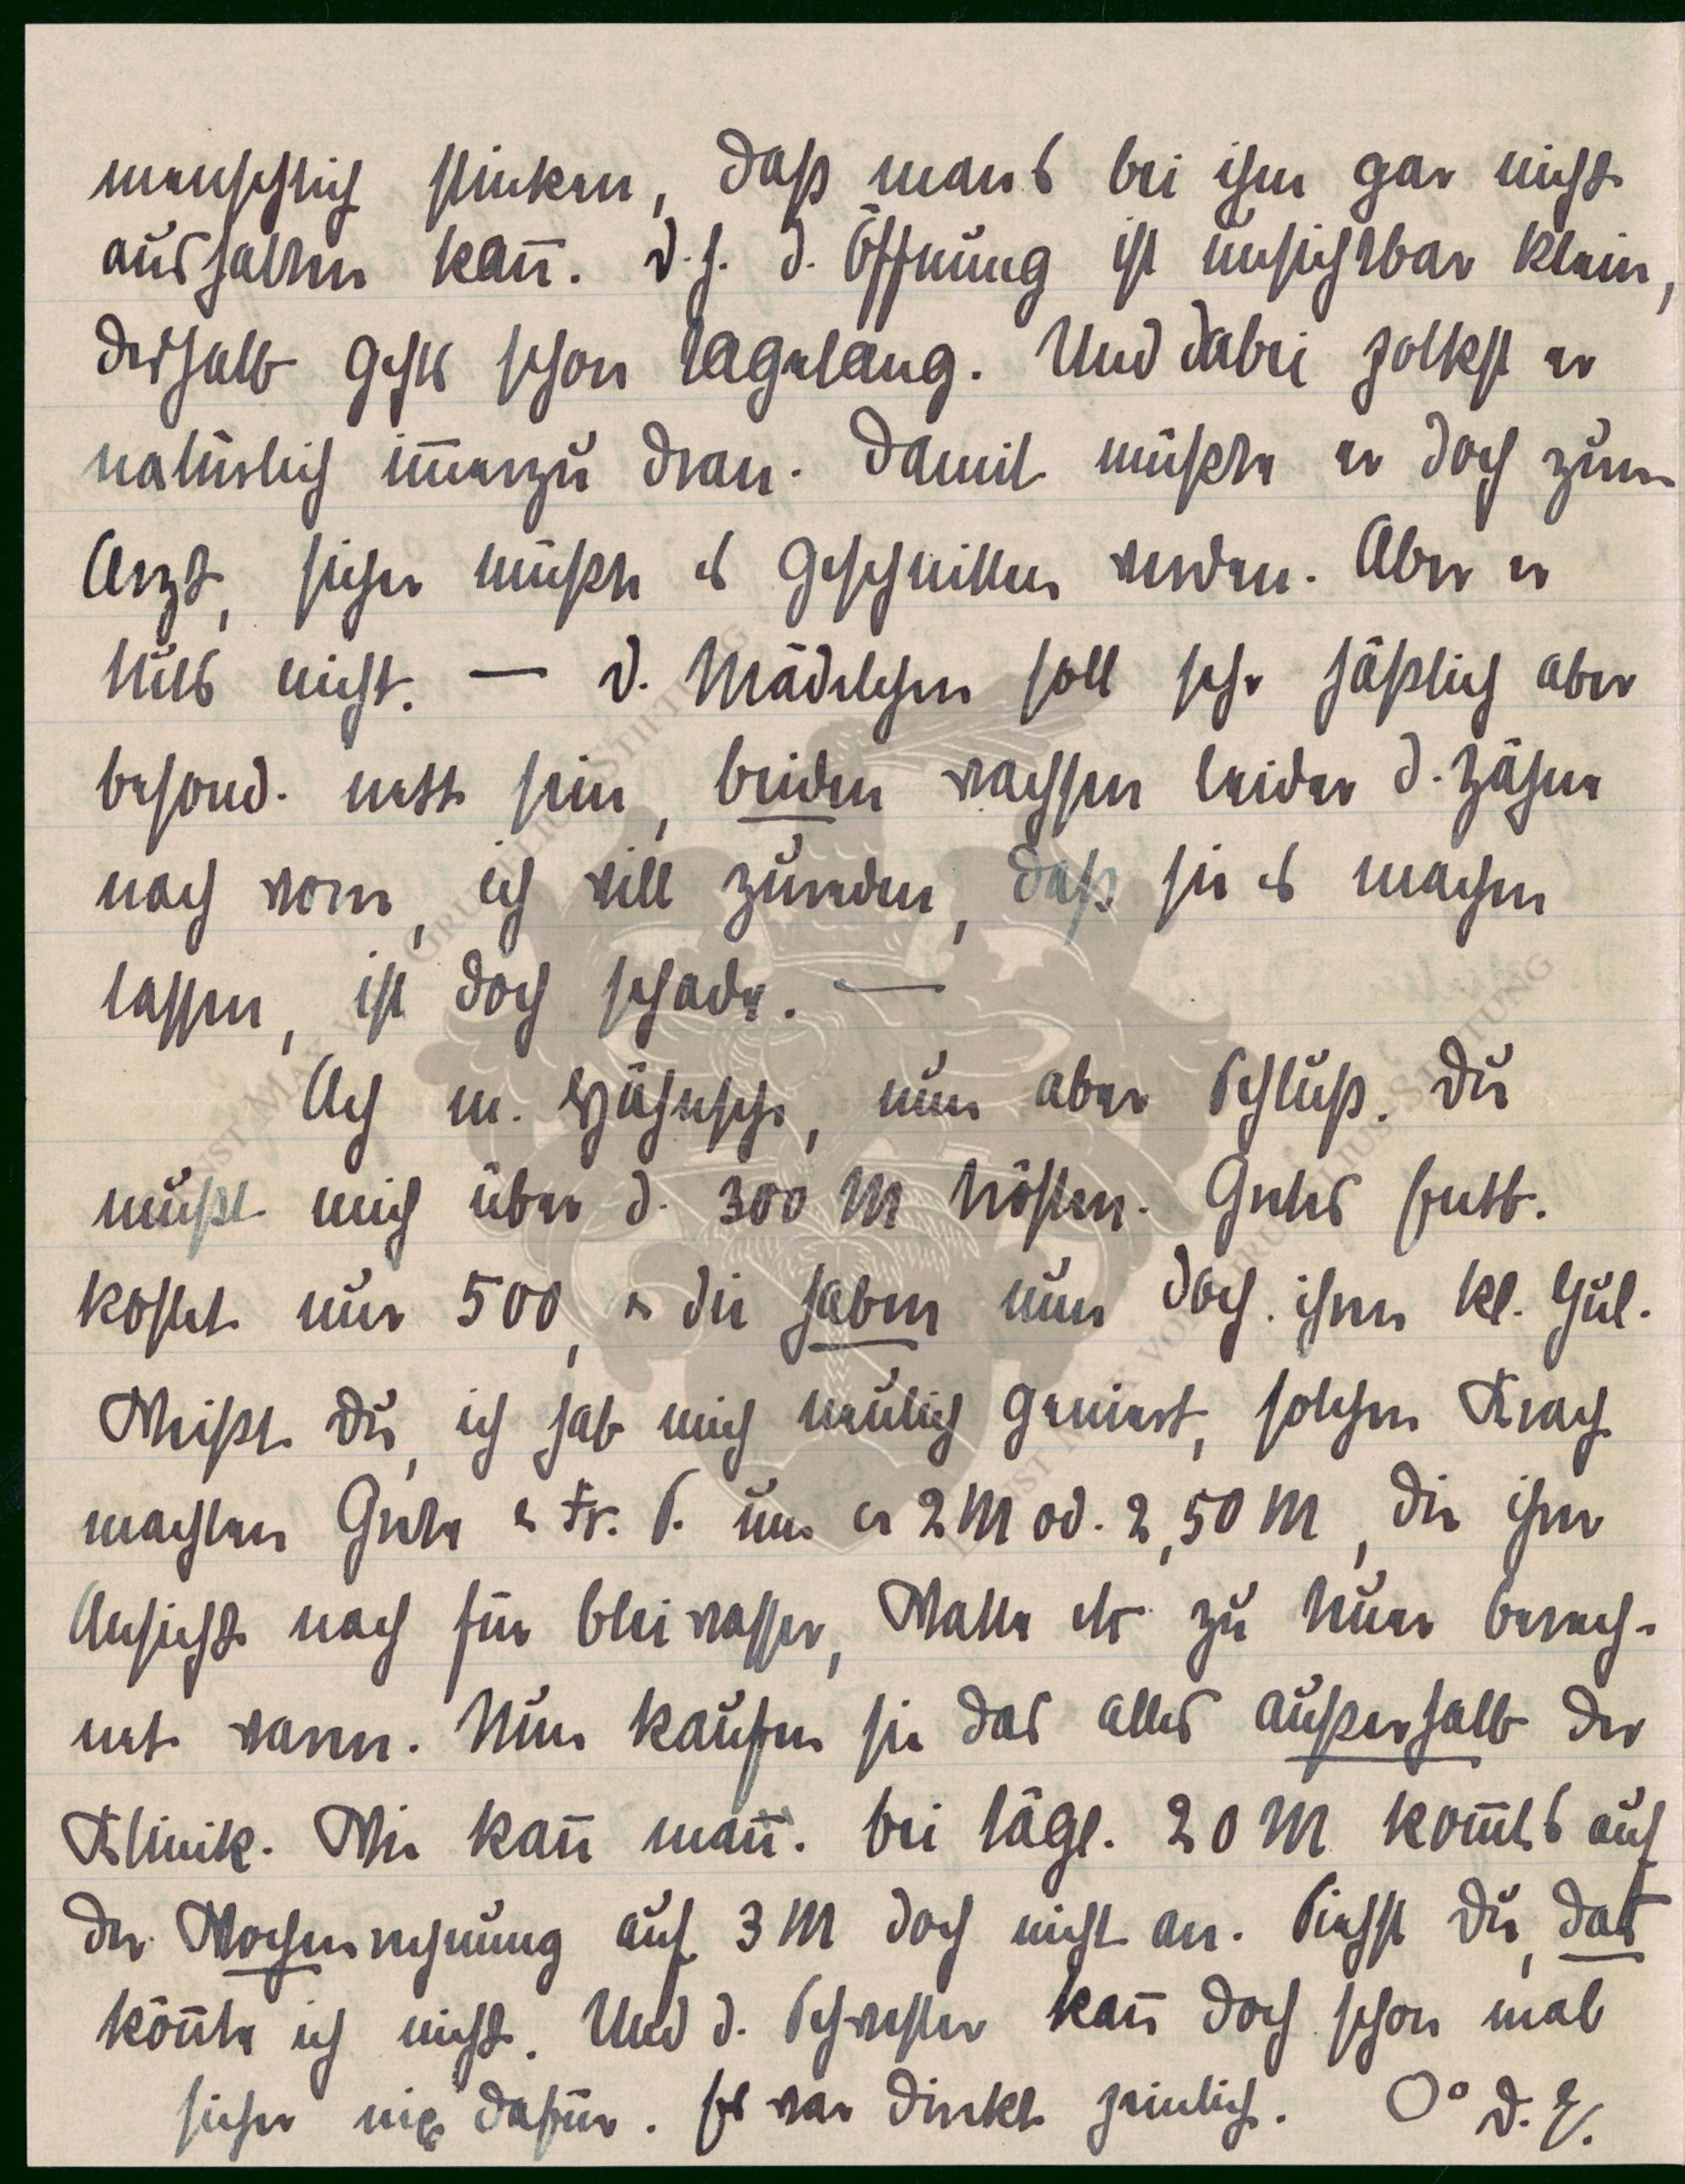 menschlich stinken, daß mans bei ihm gar nicht
aushalten kan̄. D. h. d. Öffnung ist unsichtbar klein,
deshalb gehts schon tagelang. Und dabei polkst er
natürlich im̄erzu dran. Damit müßte er doch zum
Arzt, sicher müßte es geschnitten werden. Aber er
tuts nicht. — D. Mädelchen soll sehr häßlich aber
besond. nett sein, beiden wachsen leider d. Zähne
nach vorn, ich will zureden, daß sie es machen
lassen, ist doch schade. —
Ach m. , nun aber Schluß. Du
mußt mich über d. 300 M trösten. Gretes Entb.
kostet nur 500, u die haben nun doch ihren kl. Jul.
Weißt Du, ich hab mich neulich geniert, solchen Krach
machten Grete u Fr. S. um ca 2 M od. 2,50 M, die ihrer
Ansicht nach für Bleiwasser, Watte etc zu teuer berech-
net waren. Nun kaufen sie das alles außerhalb der
Klinik. Wie kan̄ man̄. Bei tägl. 20 M kom̄ts auf
der Wochenrechnung auf 3 M doch nicht an. Siehst Du, das
kön̄te ich nicht. Und d. Schwester kan̄ doch schon mal
sicher nix dafür. Es war direkt peinlich. O° D. E.
ERNST MAX VON GRUNELIUS STIFTUNG
ERNST MAX VON GRUNELIUS STIFTUNG